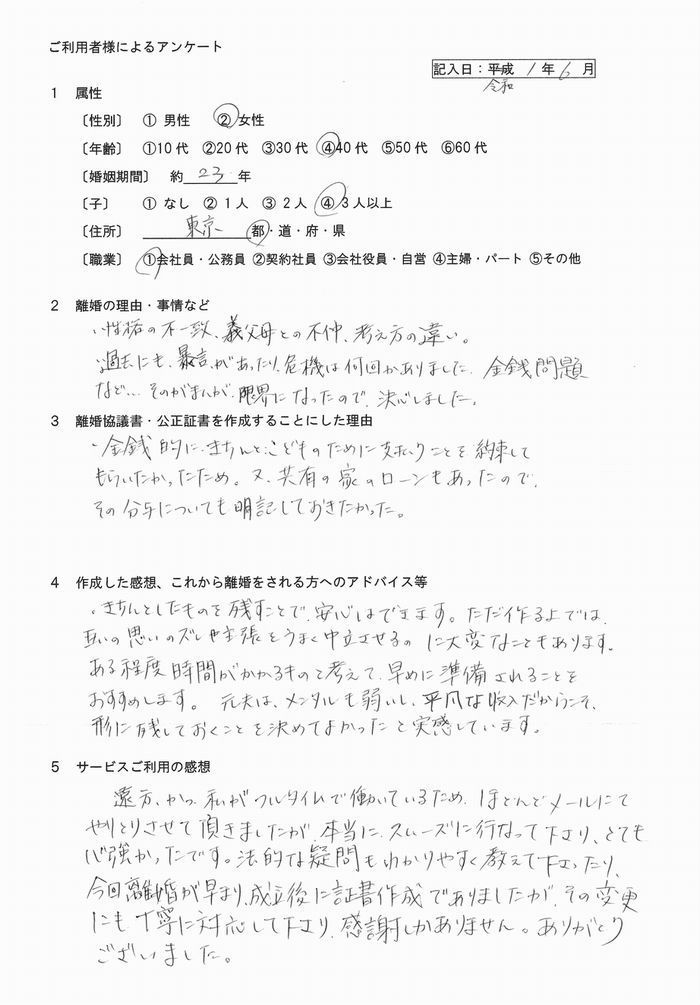 ご利用者様によるアンケート
記入日：平成 1 年 6 月
令和
1 属性
〔性別〕 ① 男性 ② 女性
〔年齢〕 ①10代 ②20代 ③30代 ④40代 ⑤50代 ⑥60代
〔婚姻期間〕 約 23 年
〔子〕 ① なし ② 1人 ③ 2人 ④ 3人以上
〔住所〕 東京 都・道・府・県
〔職業〕 ①会社員・公務員 ②契約社員 ③会社役員・自営 ④主婦・パート ⑤その他
2 離婚の理由・事情など
・性格の不一致、義父母との不仲、考え方の違い。
・過去にも、暴言、があったり、危機は何回かありました。金銭問題
など… そのがまんが、限界になったので、決心しました。
3 離婚協議書・公正証書を作成することにした理由
・金銭的に、きちんと、こどものために支払うことを約束して
もらいたかったため。又、共有の家のローンもあったので、
その分与についても明記しておきたかった。
4 作成した感想、これから離婚をされる方へのアドバイス等
・きちんとしたものを残すことで、安心はできます。ただ作る上では、
互いの思いのズレや主張をうまく中立させるのに大変なこともあります。
ある程度時間がかかるものと考えて、早めに準備されることを
おすすめします。 元夫は、メンタルも弱いし、平凡な収入だからこそ、
形に残しておくことを決めてよかったと実感しています。
5 サービスご利用の感想
遠方、かつ、私がフルタイムで働いているため、ほとんどメールにて
やりとりさせて頂きましたが、本当に、スムーズに行なって下さり、とても
心強かったです。法的な疑問もわかりやすく教えて下さったり、
今回離婚が早まり、成立後に証書作成でありましたが、その変更
にも丁寧に対応して下さり、感謝しかありません。ありがとう
ございました。